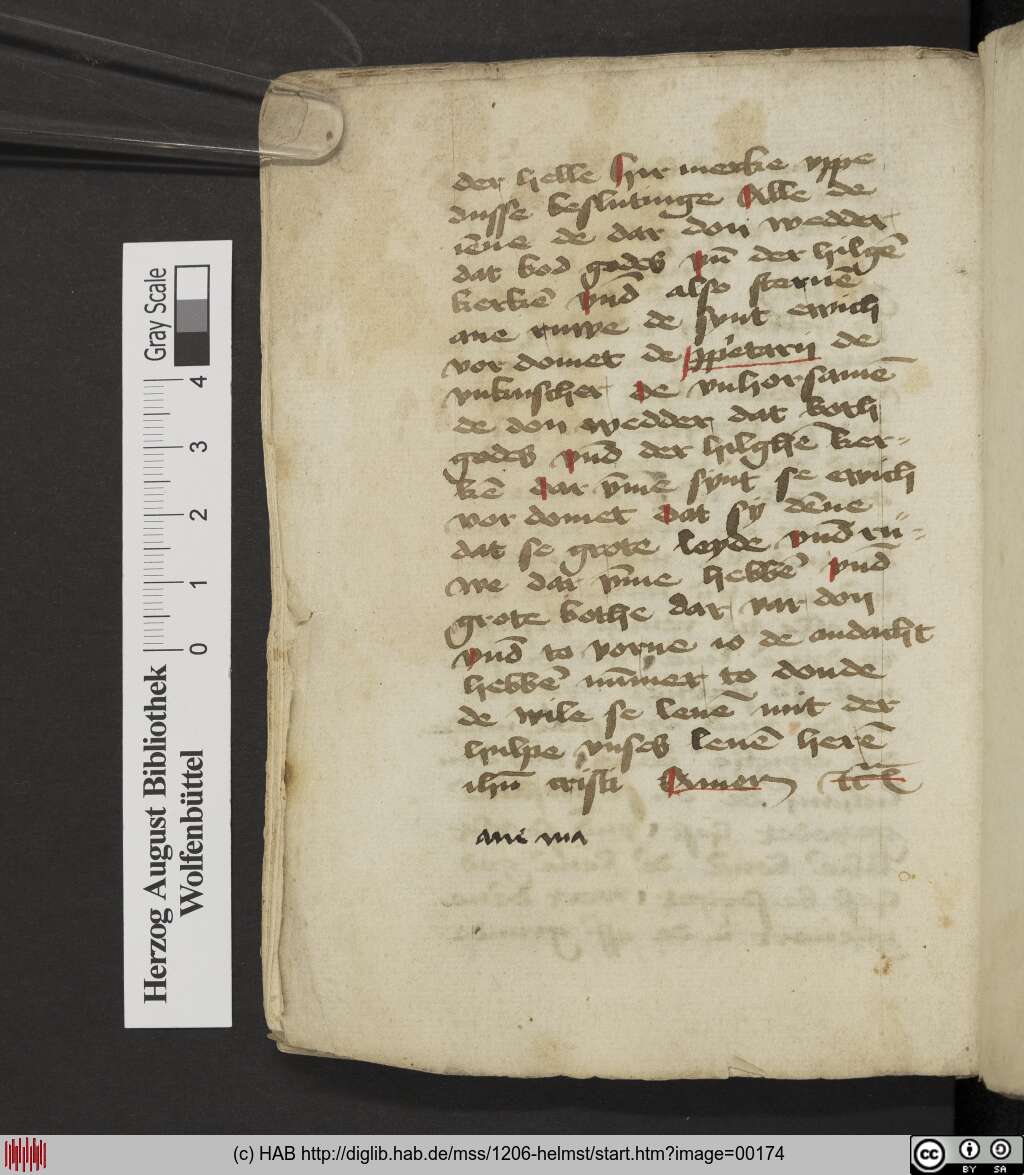 der helle Hir merke vppe
dusse beslutinge Alle de
iēne de dar don wedder
dat bod godes vn̄ der hilgē
kerkē vnd̄ also steruē
ane ruwe de synt ewich
vor domet de de
vnkuscher de vnhorsamē
de don wedder dat both
godes vnd̄ der hilghē ker-
kē dar v̄me synt se ewich
vor domet dat sy dēne
dat se grote leyde vnd̄ ru-
we dar v̄me hebbē vnd̄
grote bothe dar vor don
vnd̄ to vorne io de andacht
hebbē nūmer to donde
de wile se leuē mit der
hulpe vnses leuē herē
ihū cristi Amen
aue ma
Herzog August Bibliothek
Wolfenbüttel
0 1 2 3 4
Gray Scale
(c) HAB http://diglib.hab.de/mss/1206-helmst/start.htm?image=00174
cc BY SA